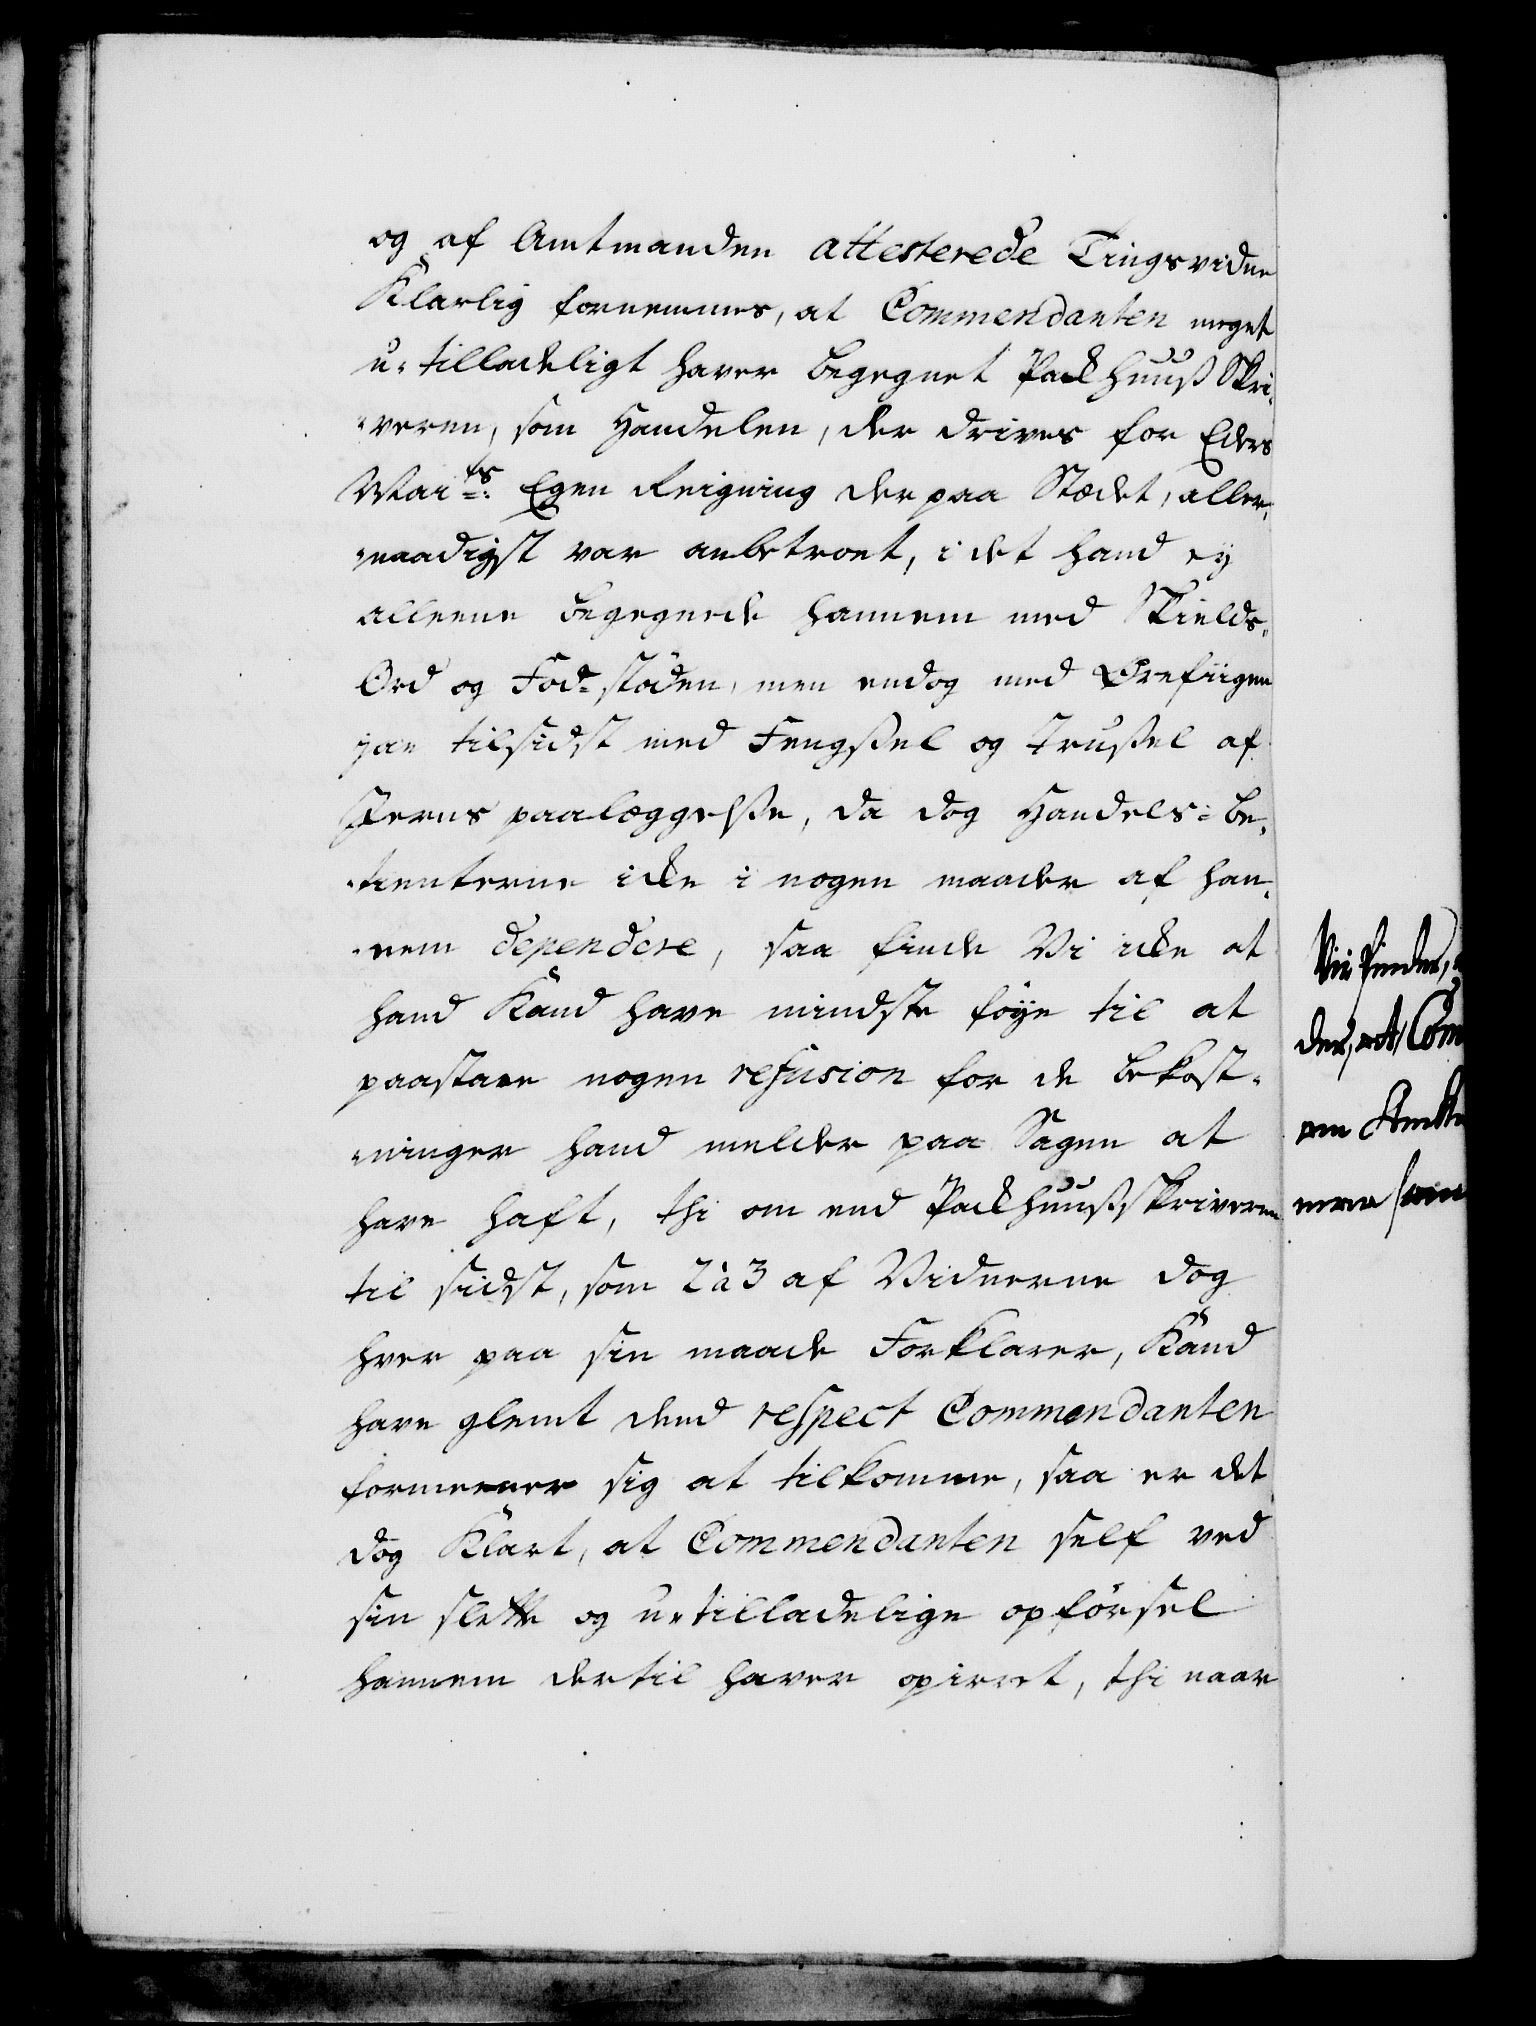 og af Amtmanden attesterede Tingsvidne
Klarlig fornemmes, at Commendanten meget
u-tilladeligt haver begegnet Packhuuß Skri-
-veren, som Handelen, der drives for Eders
Maits: Egen Reigning der paa Stædet, aller-
-naadigst var anbetroet, i det hand ey
alleene begegnede hannem med Skields-
Ord og Fod-støden, men endog med Ørefiigen
jae tilsidst med Fengßel og Trußel af
Jerns paalæggelße, da dog Handels-be-
-tienterne icke i nogen maader af han-
-nem dependere, saa finde Vi icke at
hand Kand have mindste føye til at
paastaae nogen refusion for de bekost-
-ninger hand melder paa Sagen at
have haft, thi om end Packhuußskriveren
til sidst, som 2 à 3 af Vidnerne dog
hver paa sin maade Forklarer, Kand
have glemt dend respect Commendanten
formeener sig at tilkomme, saa er det
dog Klart, at Commendanten self ved
sin slette og u-tilladelige opførsel
hannem dertil haver opirret, thi naar
Vii finder,
der, at Com